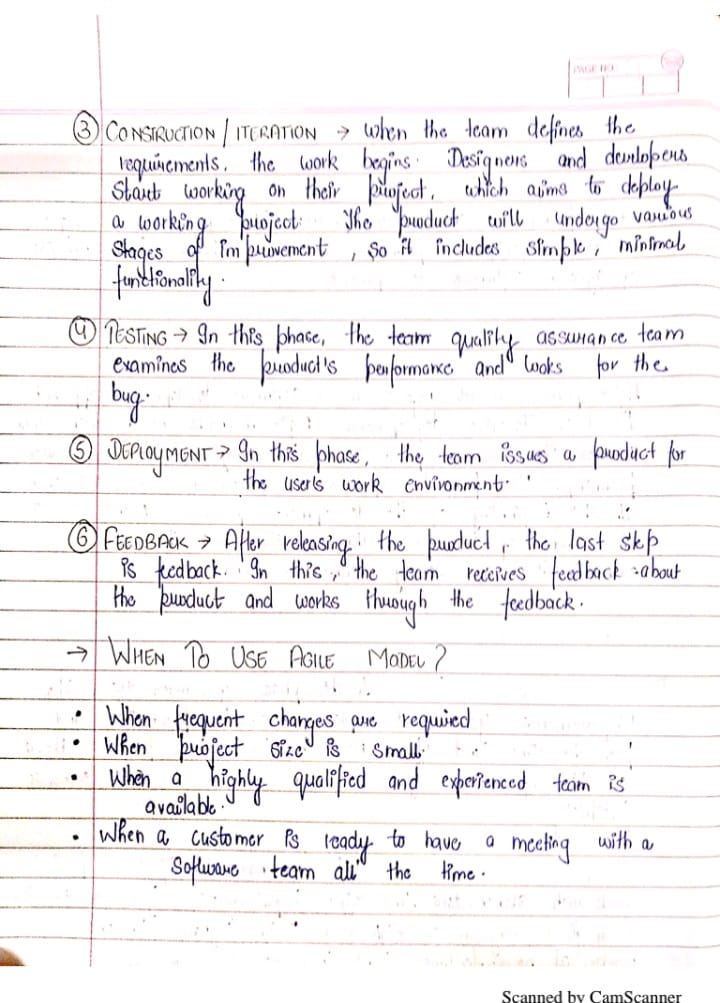 PAGE NO.
③ CONSTRUCTION / ITERATION → when the team defines the
requirements, the work begins. Designers and developers
Start working on their project, which aims to deploy
a working project. The product will undergo various
Stages of improvement, so it includes simple, minimal
functionality.
④ TESTING → In this phase, the team quality assurance team
examines the product's performance and looks for the
bug.
⑤ DEPLOYMENT → In this phase, the team issues a product for
the user's work environment.
⑥ FEEDBACK → After releasing the product, the last step
is feedback. In this, the team receives feedback about
the product and works through the feedback.
→ WHEN TO USE AGILE MODEL?
• When frequent changes are required
• When project size is small.
• When a highly qualified and experienced team is
available.
• When a customer is ready to have a meeting with a
Software team all the time.
Scanned by CamScanner